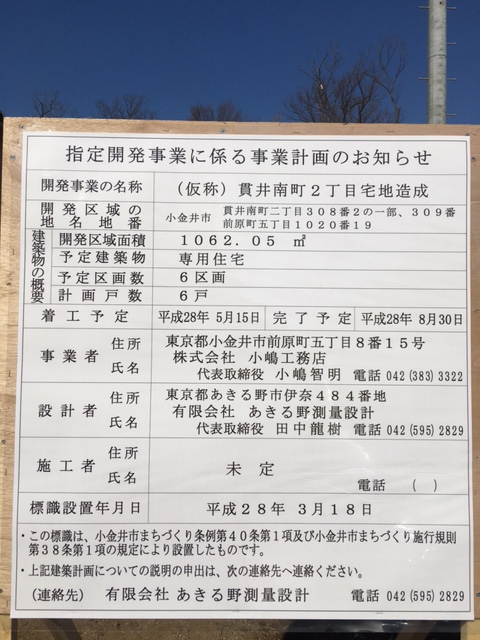 指定開発事業に係る事業計画のお知らせ
開発事業の名称 （仮称）貫井南町２丁目宅地造成
開発区域の地名地番 小金井市 貫井南町二丁目３０８番２の一部、３０９番
前原町五丁目１０２０番１９
建築物の概要
開発区域面積 １０６２．０５ ㎡
予定建築物 専用住宅
予定区画数 ６区画
計画戸数 ６戸
着工予定 平成28年 5月15日 完了予定 平成28年 8月30日
事業者 住所 東京都小金井市前原町五丁目８番１５号
氏名 株式会社 小嶋工務店
代表取締役 小嶋智明 電話 042 (383) 3322
設計者 住所 東京都あきる野市伊奈４８４番地
氏名 有限会社 あきる野測量設計
代表取締役 田中龍樹 電話 042 (595) 2829
施工者 住所
氏名 未定
電話 ( )
標識設置年月日 平成２８年 ３月１８日
・この標識は、小金井市まちづくり条例第４０条第１項及び小金井市まちづくり施行規則
第３８条第１項の規定により設置したものです。
・上記建築計画についての説明の申出は、次の連絡先へ連絡ください。
（連絡先） 有限会社 あきる野測量設計 電話 042 (595) 2829